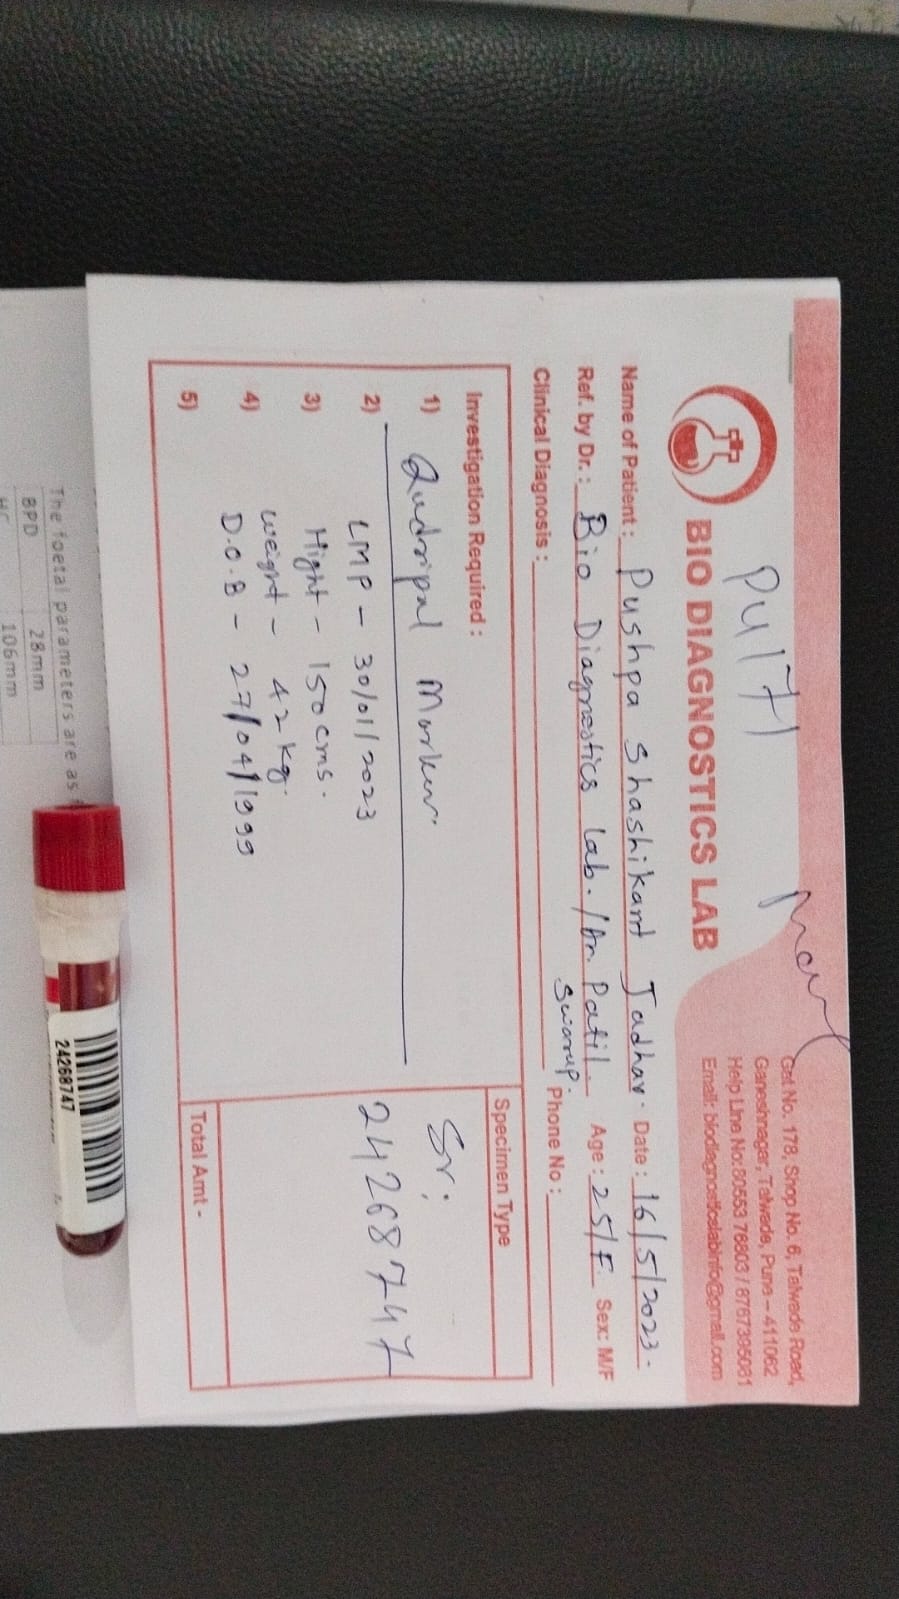 PU171
BIO DIAGNOSTICS LAB
Gat No. 178, Shop No. 6, Talwade Road,
Ganeshnagar, Talwade, Pune – 411062
Help Line No: 80553 76803 / 8767395081
Email: biodiagnosticslabinfo@gmail.com
Name of Patient : Pushpa Shashikant Jadhav. Date : 16/5/2023.
Ref. by Dr. : Bio Diagnostics Lab. /Dr. Patil. Age : 25/F. Sex: M/F
Swarup.
Clinical Diagnosis : Phone No :
Investigation Required : Specimen Type
1) Qudripal Marker. Sr:
24268747
2) LMP - 30/01/2023
3) Hight - 150 cms.
weight - 42 kg.
4) D.O.B - 27/04/1999
5) Total Amt -
The foetal parameters are as
BPD 28mm
HC 106mm
24268747